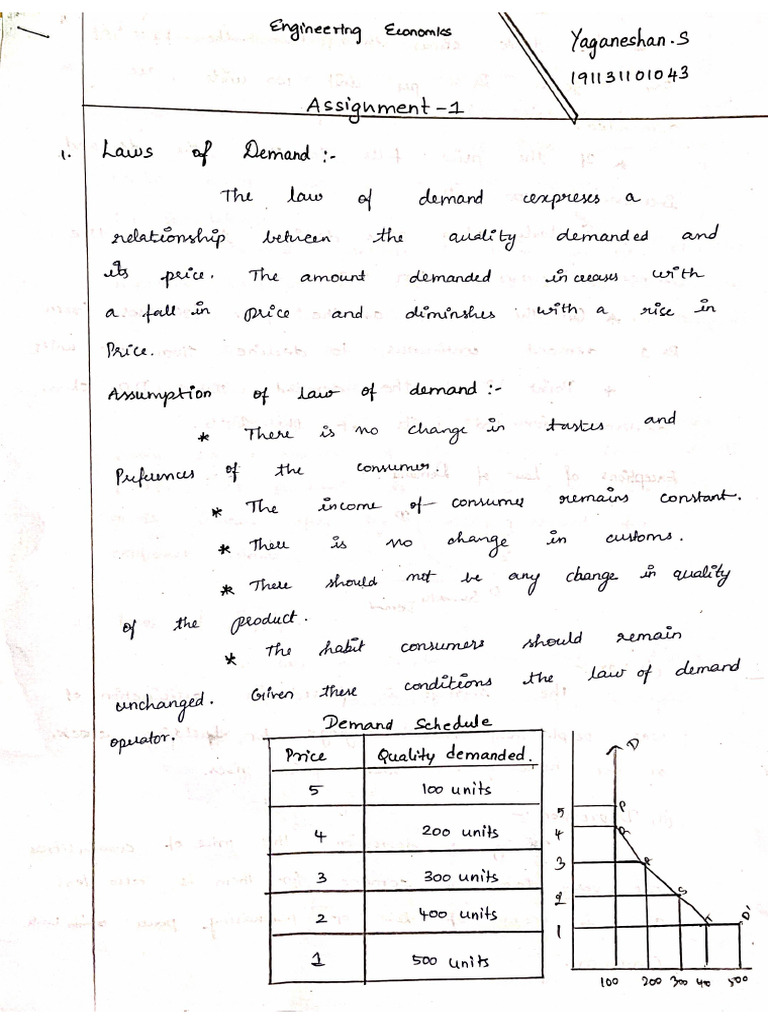 Engineering Economics
Yaganeshan.S
191131101043
Assignment-1
1. Laws of Demand :-
The law of demand cexpreses a
relationship between the quality demanded and
its price. The amount demanded increases with
a fall in price and diminshes with a rise in
Price.
Assumption of law of demand :-
* There is no change in tastes and
Preferences of the consumer.
* The income of consumer remains constant.
* There is no change in customs.
* There should not be any change in quality
of the product.
* The habit consumers should remain
unchanged. Given these conditions the law of demand
operator.
Demand Schedule
Price Quality demanded.
5 100 units
4 200 units
3 300 units
2 400 units
1 500 units
D
5 P
4 R
3 R
2 S
1 T D'
100 200 300 40 500